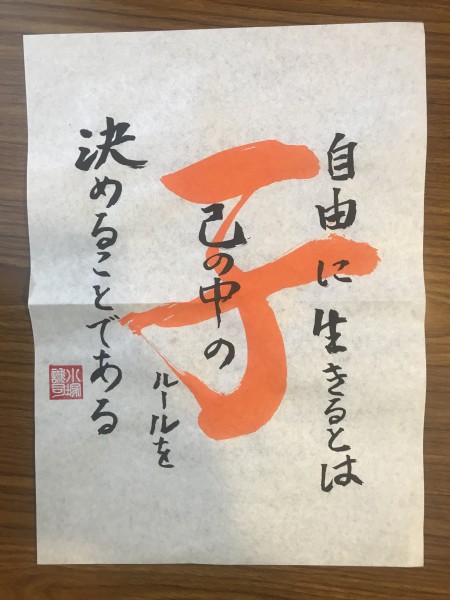 自由に生きるとは
己の中の
ルールを
決めることである
子